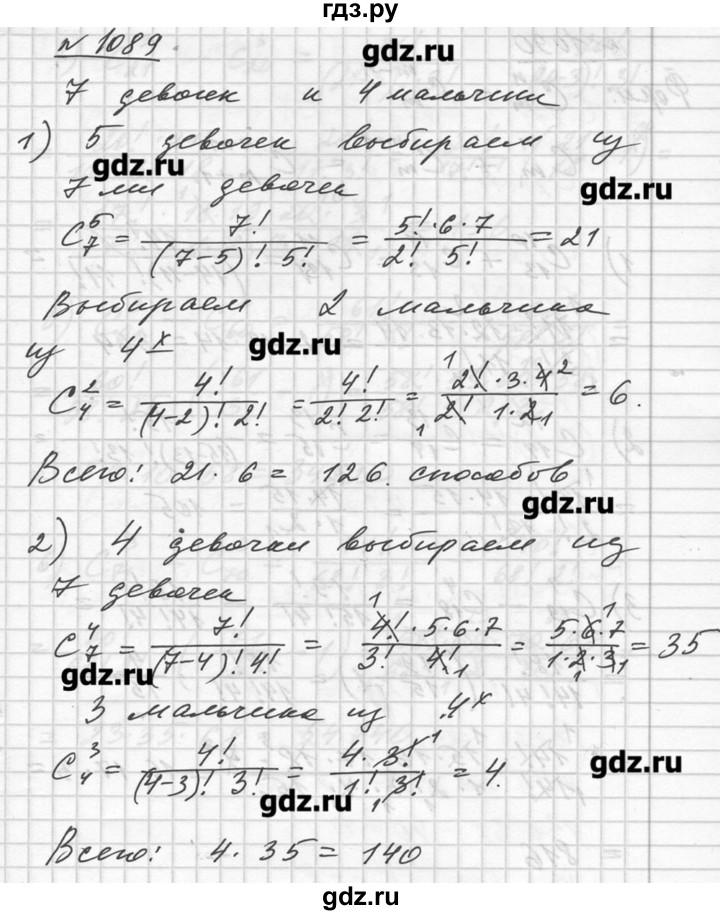 гдз.ру
№ 1089.
gdz.ru
7 девочек и 4 мальчика
1) 5 девочек выбираем из
gdz.ru
7ми девочек
gdz.ru
C₇⁵ = 7! / (7-5)! 5! = 5!·6·7 / 2! 5! = 21
Выбираем 2 мальчика
из 4х
gdz.ru
C₄² = 4! / (4-2)! 2! = 4! / 2! 2! = 2!·3·4 / 2! 1·2 = 6.
Всего: 21·6 = 126 способов
gdz.ru
2) 4 девочки выбираем из
7 девочек
C₇⁴ = 7! / (7-4)! 4! = 4!·5·6·7 / 3! 4! = 5·6·7 / 1·2·3 = 35
gdz.ru
3 мальчика из 4х
C₄³ = 4! / (4-3)! 3! = 4·3! / 1! 3! = 4.
gdz.ru
gdz.ru
Всего: 4·35 = 140
gdz.ru